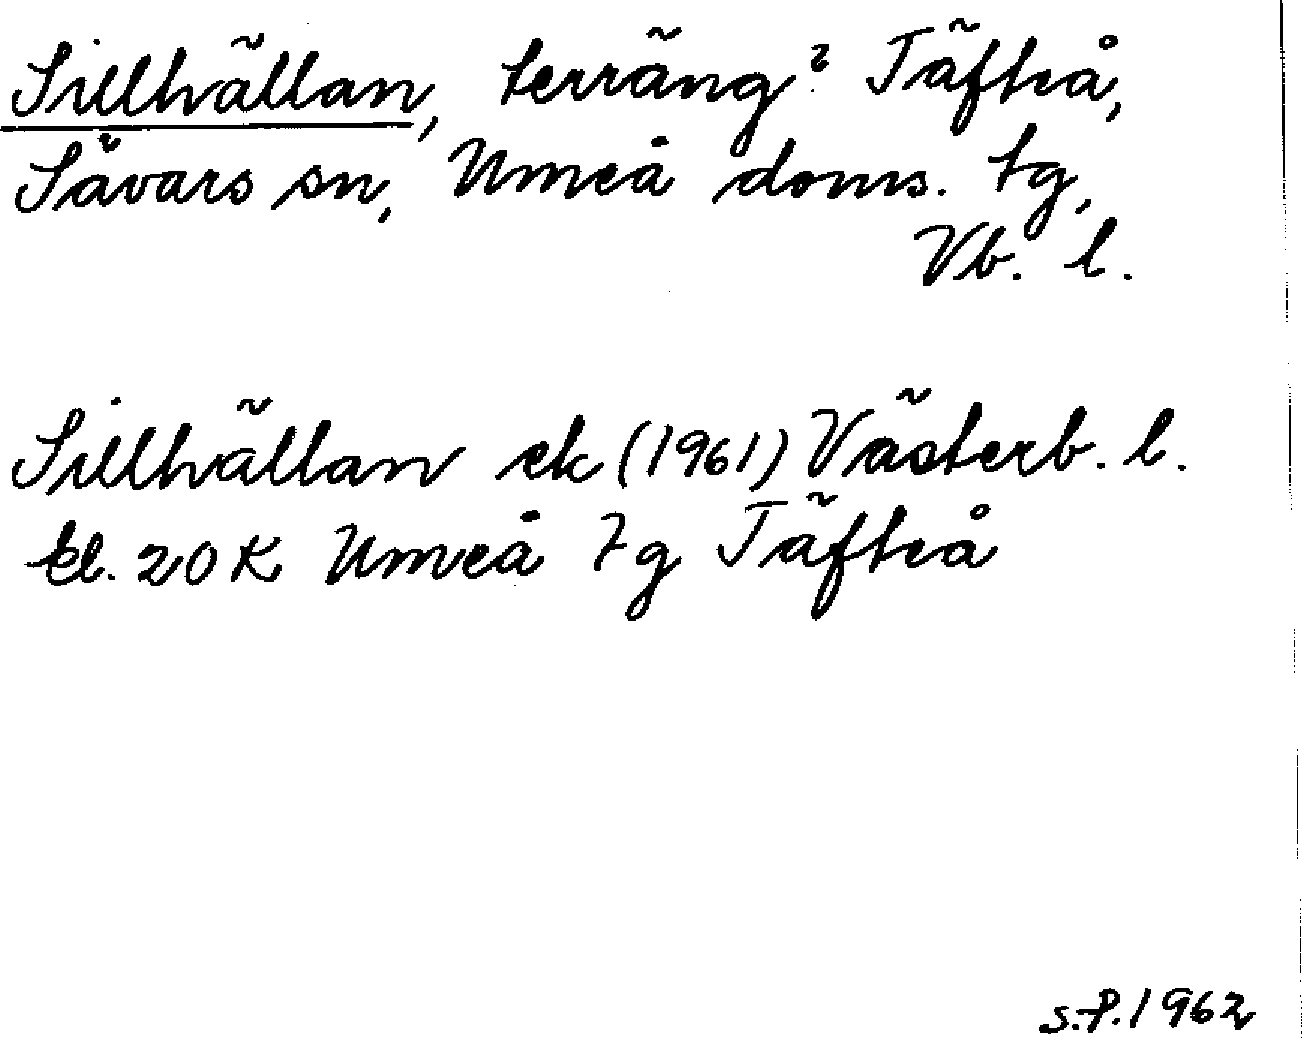 Sillhällan, terräng? Täfteå,
Sävars sn, Umeå doms. tg,
Vb. l.
Sillhällan ek (1961) Västerb. l.
bl. 20 K Umeå tg Täfteå
S.P. 1962